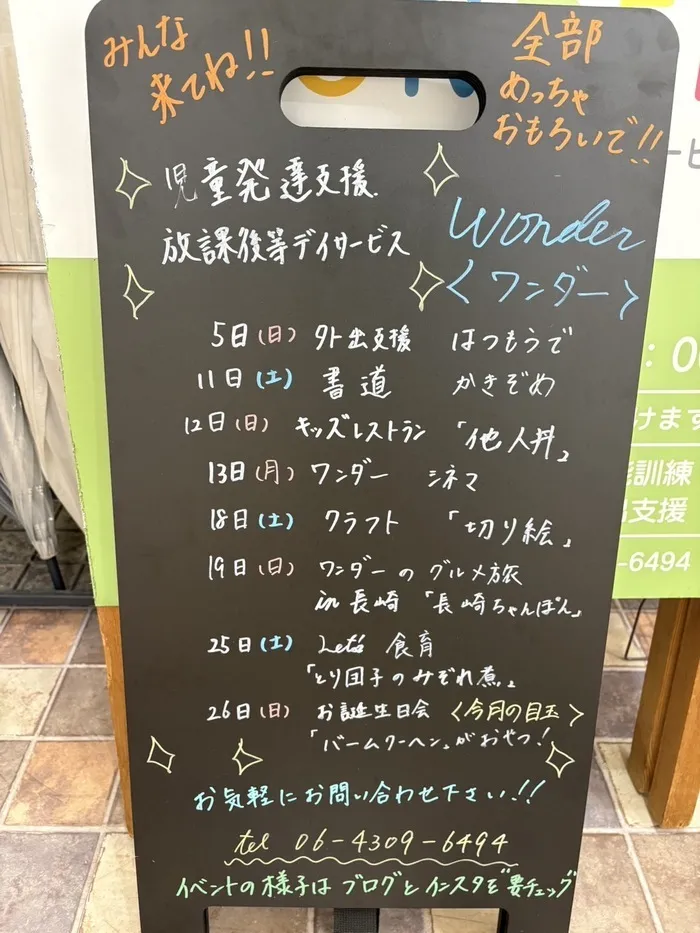 みんな
来てね!!
全部
めっちゃ
おもろいで!!
児童発達支援
放課後等デイサービス
Wonder
<ワンダー>
5日(日) 外出支援 はつもうで
11日(土) 書道 かきぞめ
12日(日) キッズレストラン 「他人丼」
13日(月) ワンダー シネマ
18日(土) クラフト 「切り絵」
19日(日) ワンダーのグルメ旅
in 長崎 「長崎ちゃんぽん」
25日(土) Let's 食育
「とり団子のみぞれ煮」
26日(日) お誕生日会 <今月の目玉>
「バームクーヘン」がおやつ!
お気軽にお問い合わせ下さい!!
tel 06-4309-6494
イベントの様子はブログとインスタを"要チェック"
けます
訓練
支援
-6494